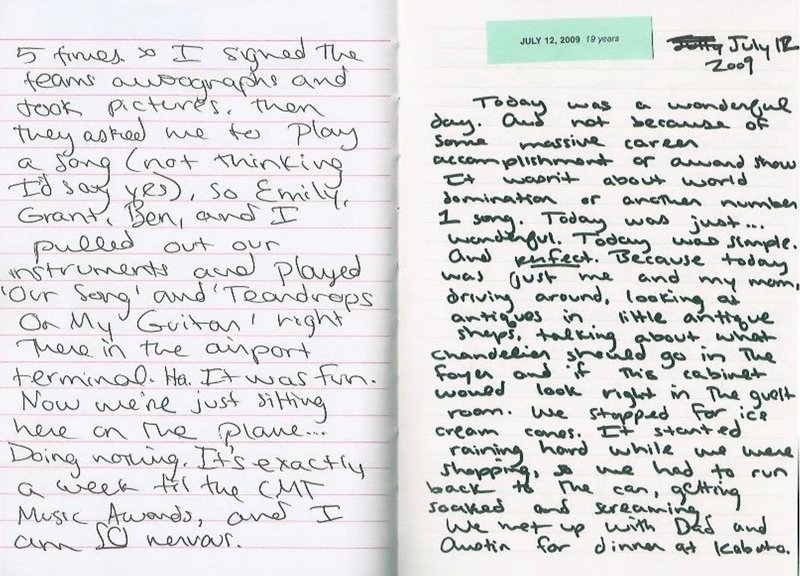 5 times so I signed the
teams autographs and
took pictures. then
they asked me to play
a song (not thinking
I'd say yes), so Emily,
Grant, Ben, and I
pulled out our
instruments and played
'Our Song' and 'Teardrops
On My Guitar' right
there in the airport
terminal. Ha. It was fun.
Now we're just sitting
here on the plane...
Doing nothing. It's exactly
a week til the CMT
Music Awards, and I
am SO nervous.
JULY 12, 2009 19 years
July 12
2009
Today was a wonderful
day. And not because of
some massive career
accomplishment or award show
It wasn't about world
domination or another number
1 song. Today was just...
wonderful. Today was simple.
And perfect. Because today
was just me and my mom,
driving around, looking at
antiques in little antique
shops, talking about what
chandelier should go in the
foyer and if this cabinet
would look right in the guest
room. We stopped for ice
cream cones. It started
raining hard while we were
shopping, so we had to run
back to the car, getting
soaked and screaming.
We met up with Dad and
Austin for dinner at Kabuto.